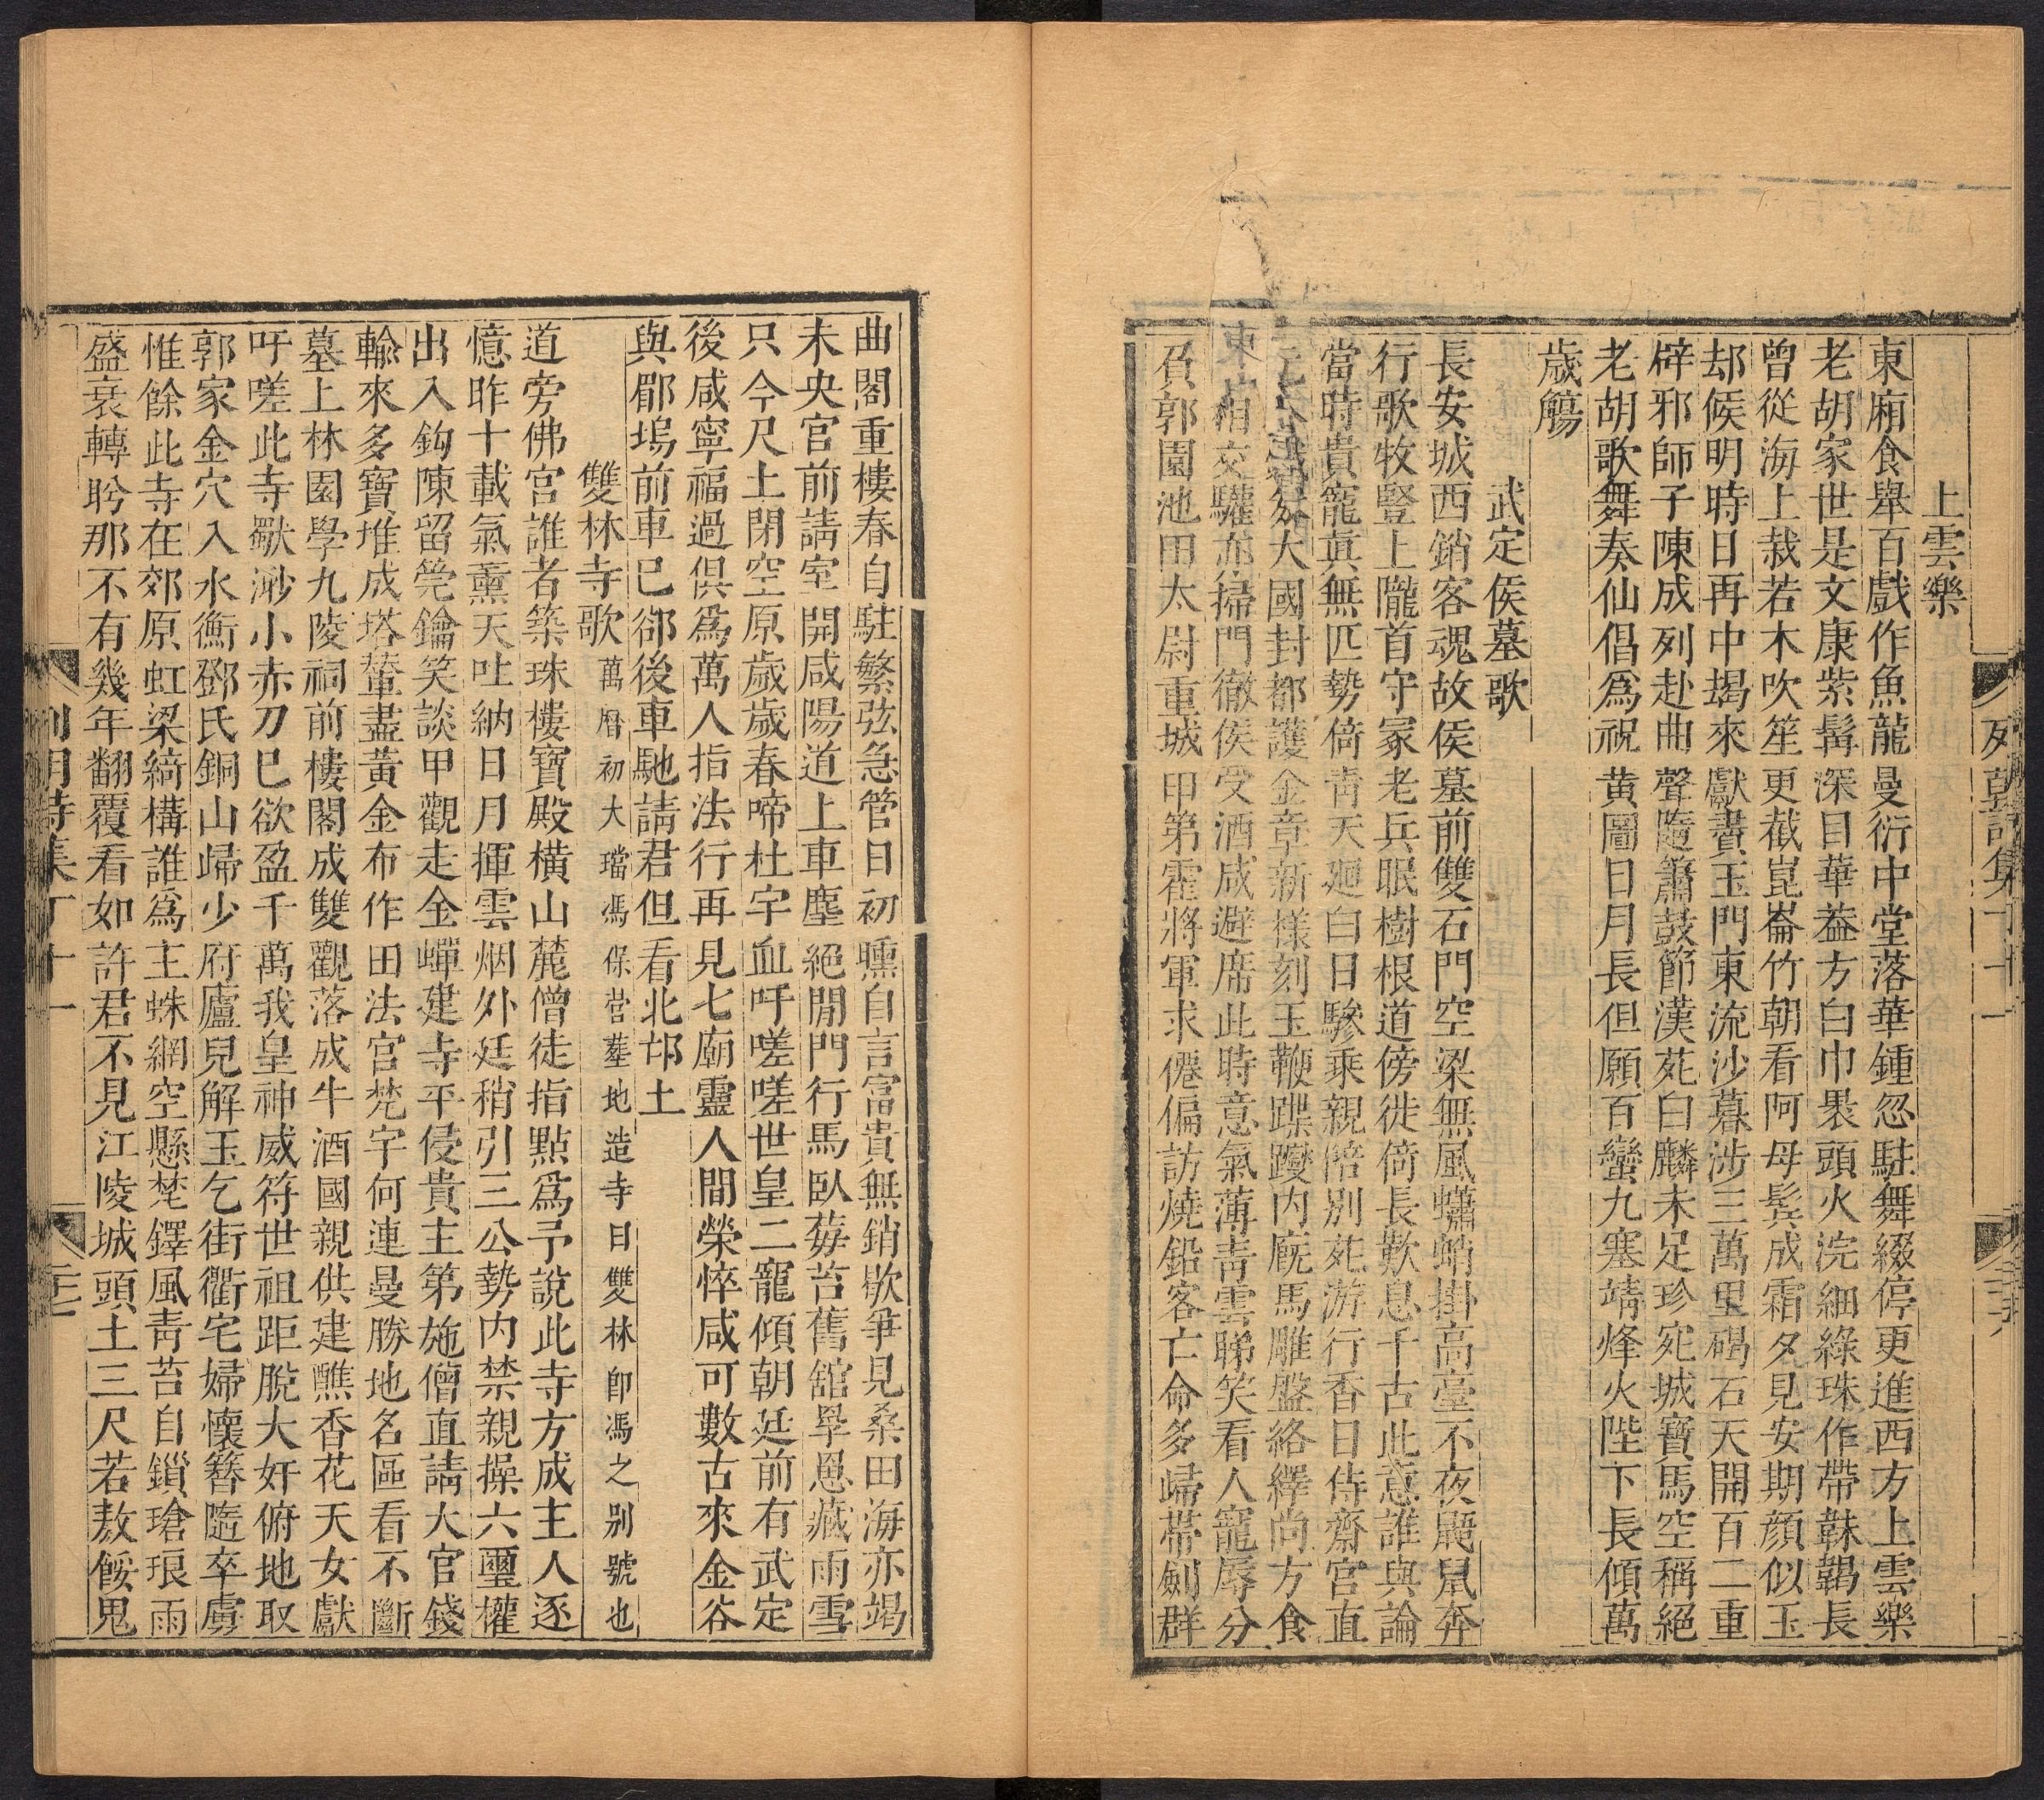 上雲樂
東廂食舉百戲作魚龍曼衍中堂落華鍾忽駐舞綴停更進西方上雲樂
老胡家世是文康紫髯深目華葢方白巾裹頭火浣細綠珠作帶韎鞨長
曾從海上栽若木吹笙更截崑崙竹朝看阿母鬂成霜夕見安期顏似玉
却候明時日再中朅來獻賮玉門東流沙暮涉三萬里碣石天開百二重
辟邪師子陳成列赴曲聲隨簫鼓節漢苑白麟未足珍宛城寶馬空稱絕
老胡歌舞奏仙倡爲祝黃圖日月長但願百蠻九塞靖烽火陛下長傾萬
歲觴
武定侯墓歌
長安城西銷客魂故侯墓前雙石門空梁無風蠨蛸掛高臺不夜鼯鼠奔
行歌牧豎上隴首守冢老兵眠樹根道傍徙倚長歎息千古此意誰與論
當時貴寵眞無匹勢倚靑天廻白日驂乘親陪別苑游行香日侍齋宮直
大國封都護金章新樣刻玉鞭蹀躞内廐馬雕盤絡繹尚方食
相交驩掃門徹侯受酒咸避席此時意氣薄靑雲睇笑看人寵辱分
負郭園池田太尉重城甲第霍將軍求僊偏訪燒鉛客亡命多歸帶劍群
曲閣重樓春自駐繁弦急管日初曛自言富貴無銷歇爭見桑田海亦竭
未央宫前請室開咸陽道上車塵絕閒門行馬臥莓苔舊舘罘罳藏雨雪
只今尺土閉空原歲歲春啼杜宇血吁嗟嗟世皇二寵傾朝廷前有武定
後咸寧福過俱爲萬人指法行再見七廟靈人間榮悴咸可數古來金谷
與郿塢前車已郤後車馳請君但看北邙土
雙林寺歌 萬曆初大璫馮保營塟地造寺曰雙林卽馮之别號也
道旁佛宫誰者築珠樓寶殿橫山麓僧徒指點爲予說此寺方成主人逐
憶昨十載氣薰天吐納日月揮雲烟外廷稍引三公勢内禁親操六璽權
出入鈎陳留筦鑰笑談甲觀走金蟬建寺平侵貴主第施僧直請大官錢
輸來多寶堆成塔輦盡黃金布作田法宫梵宇何連曼勝地名區看不斷
墓上林園學九陵祠前樓閣成雙觀落成牛酒國親供建醮香花天女獻
吁嗟此寺歇渺小赤刀已欲盈千萬我皇神威符世祖距脫大奸俯地取
郭家金穴入水衡鄧氏銅山歸少府廬兒解玉乞街衢宅婦懷簪隨卒虜
惟餘此寺在郊原虹梁綺構誰爲主蛛網空懸梵鐸風靑苔自鎖瑲琅雨
盛衰轉盻那不有幾年翻覆看如許君不見江陵城頭土三尺若敖餒鬼